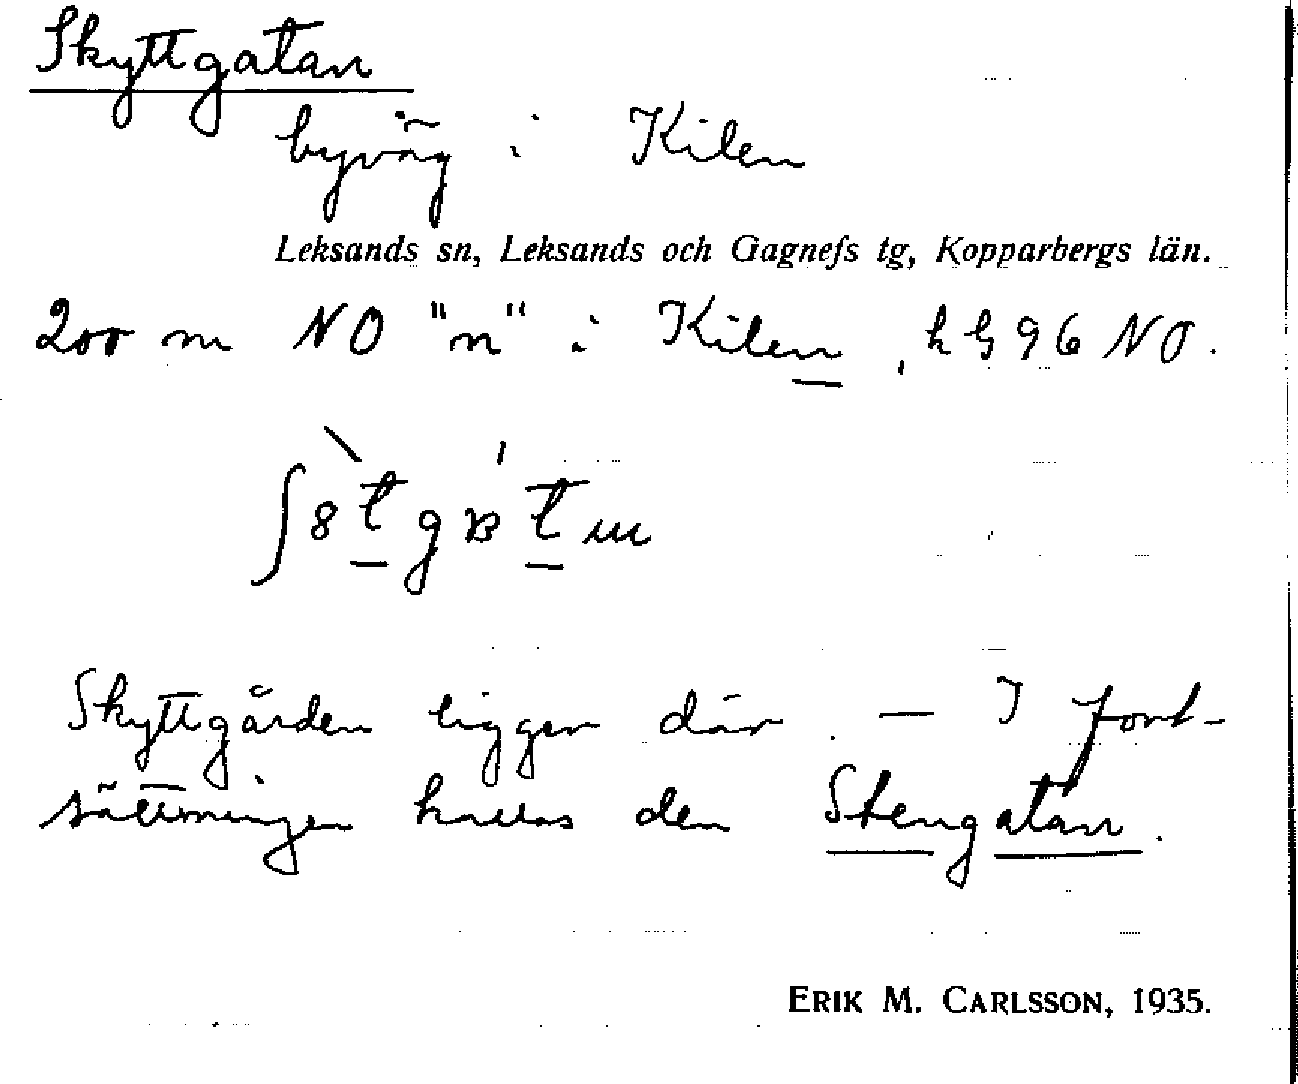 Skyttgatan
byväg i Kilen
Leksands sn, Leksands och Gagnefs tg, Kopparbergs län.
200 m NO "n" i Kilen, h h 96 NO.
Skyttgården ligger där. — I fort-
sättningen kallas den Stengatan.
ERIK M. CARLSSON, 1935.